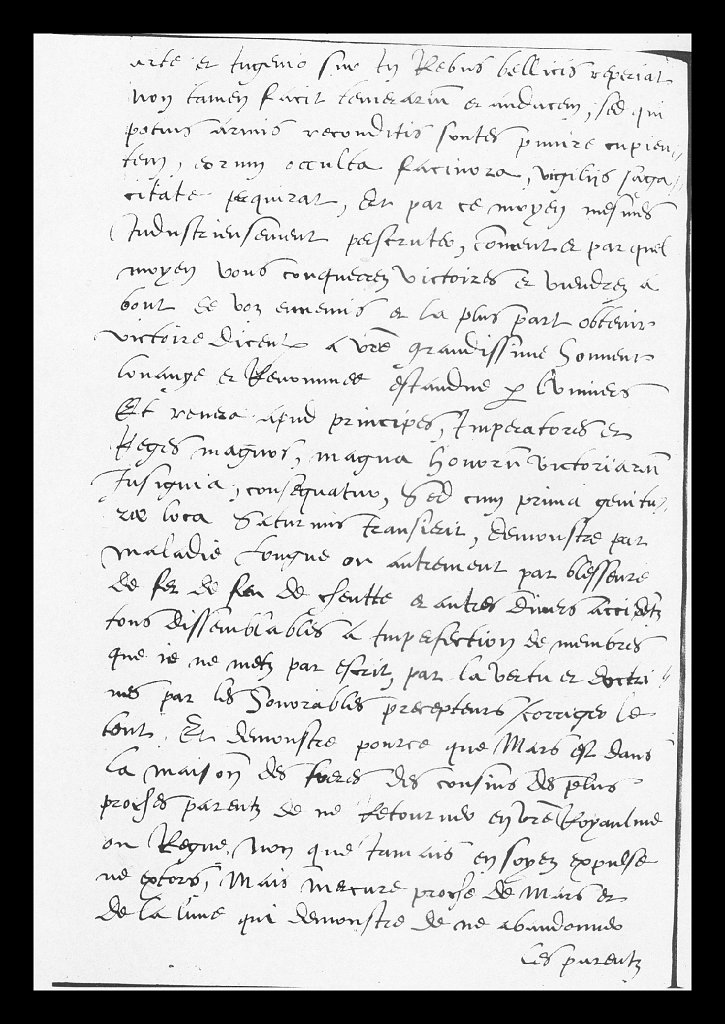 arte et Ingenio suo In Rebus bellicis reperiat
Non tamen facit temerariū et audacem, sed qui
potius armis reconditis sontes punire cupien//
tem, eorum occulta facinora, vigilijs saga//
citate perquirat, Et par ce moyen mesmes
Industrieusement perscruter, coment et par quel
moyen vous conquerrez victoires et viendrez a
bout de voz ennemis et la plus part obtenir
victoire dicent a vrē grandissime honneur
louange et Renommee estandue p l'univers
Et revera apud principes, Imperatores et
Reges magnos, magna honorū victoriarū
Insignia, consequatur, Sed cum prima genitu//
rae loca Saturnus transierit, demonstre par
maladie longue ou autrement par blesseure
de fer de feu de cheutte et autres divers accidētz
tous dissemblables a Imperfection de membres
que ie ne metz par escrit, par la vertu et doctri//
nes par les honorables precepteurs / corriger le
tout. Et demonstre pource que Mars est dans
la maison des freres des cousins des plus
proches parentz de ne Retourner en vrē Royaulme
ou Regne, Non que Iamais en soyez expulse
ne extors, Mais Mercure proche de Mars et
de la lune qui demonstre de ne abandonner
les parentz